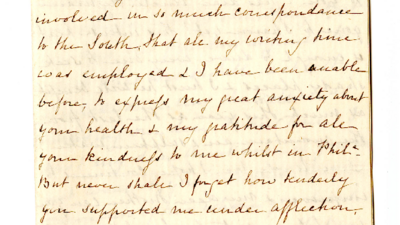 involved in so much correspondance
to the South, that all my writing time
was employed & I have been unable
before, to express my great anxiety about
your health & my gratitude for all
your kindness to me whilst in Phila-
But never shall I forget how tenderly
you supported me under affliction.